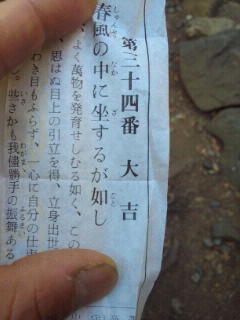 第三十四番 大吉
春風の中に坐するが如し
、よく萬物を発育せしむる如く、この
、思はぬ目上の引立を得、立身出世
わき目もふらず、一心に自分の仕事
。些さかも我儘勝手の振舞ある